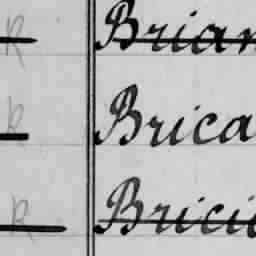 R Brian
R Brica
R Brici